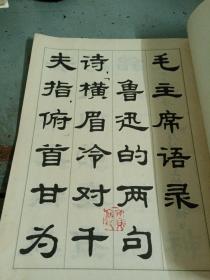 毛主席语录
鲁迅的两句
诗横眉冷对千
夫指俯首甘为